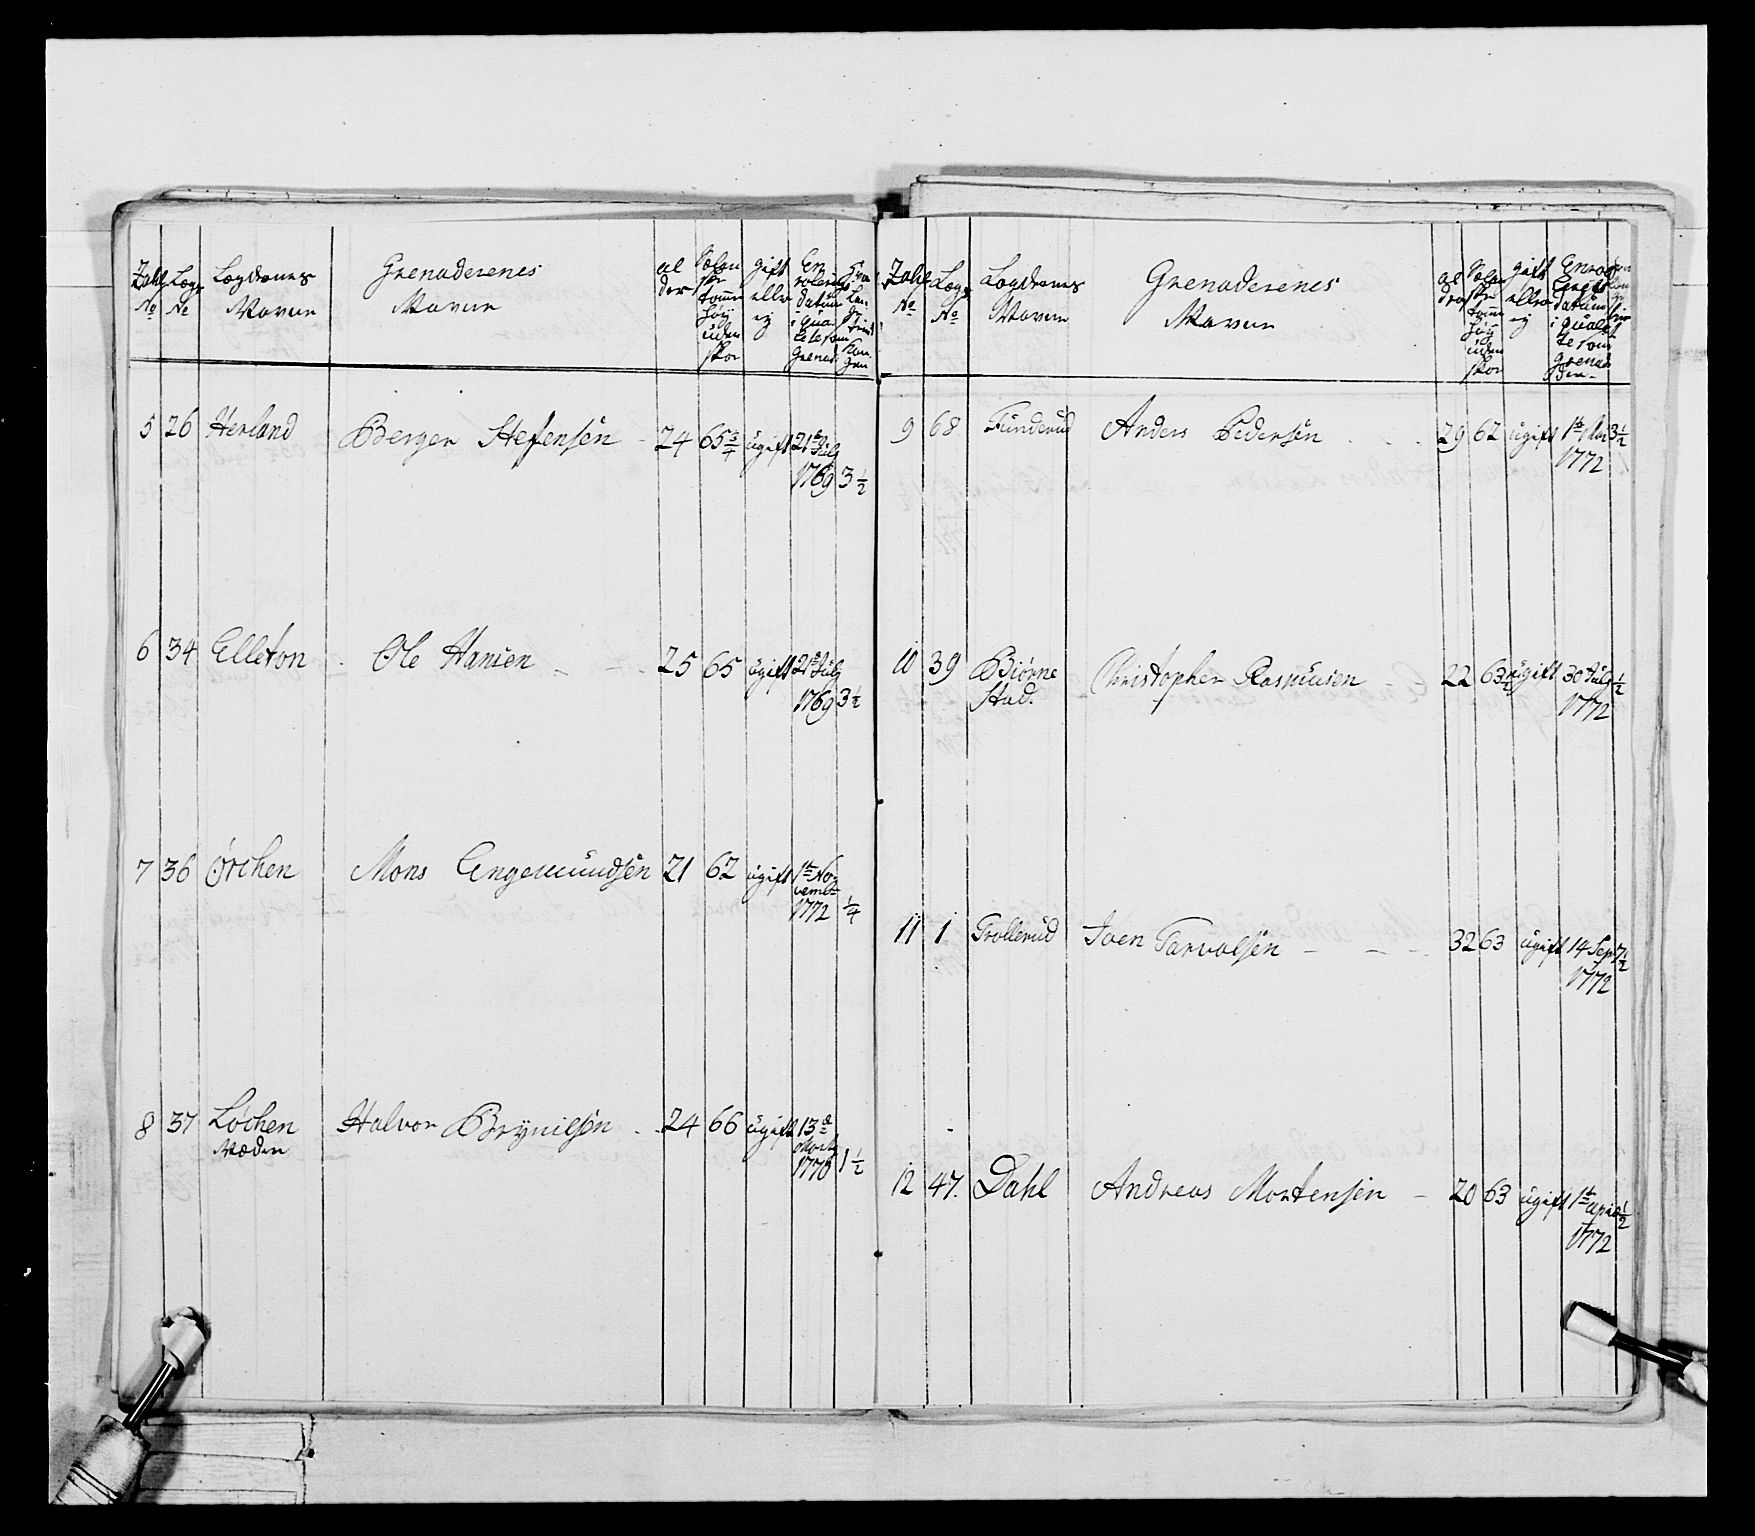 Zahl No | Lægs No | Lægdernes Navne | Grenaderenes Navne | alder | Sælanske tomer höy uden skoe | gift eller ey | Enrolerings datum i qualitet som Grenad: |
5 | 26 | Herland | Berger Stefensen | 24 | 65 3/4 | ugift | 21de Julij 1769 | 3 1/2
6 | 34 | Elleton | Ole Hansen | 25 | 65 | ugift | 21de Julij 1769 | 3 1/2
7 | 36 | Örchen | Mons Engemundsen | 21 | 62 | ugift | 1te Novembr 1772 | 1/4
8 | 37 | Löchen Næden | Halvor Brynilsen | 24 | 66 | ugift | 13de Martz 1770 | 1 1/2
Zahl No | Lægs No | Lægdernes Navne | Grenaderenes Navne | alder | Sælanske tomer höy uden skoe | gift eller ey | Enrolerings datum i qualitet som Grenader |
9 | 68 | Funderud | Anders Pedersen | 29 | 62 | ugift | 1te Mar 1772 | 3 1/2
10 | 39 | Biörne Stad. | Christopher Rasmusen | 22 | 63 1/2 | ugift | 30 Julij 1772 | 1/2
11 | 1 | Trollerud | Joen Tarvalsen | 32 | 63 | ugift | 14 Sep 1772 | 7 1/2
12 | 47. | Dahl | Andreas Mortensen | 20 | 63 | ugift | 1te April 1772 | 1/2